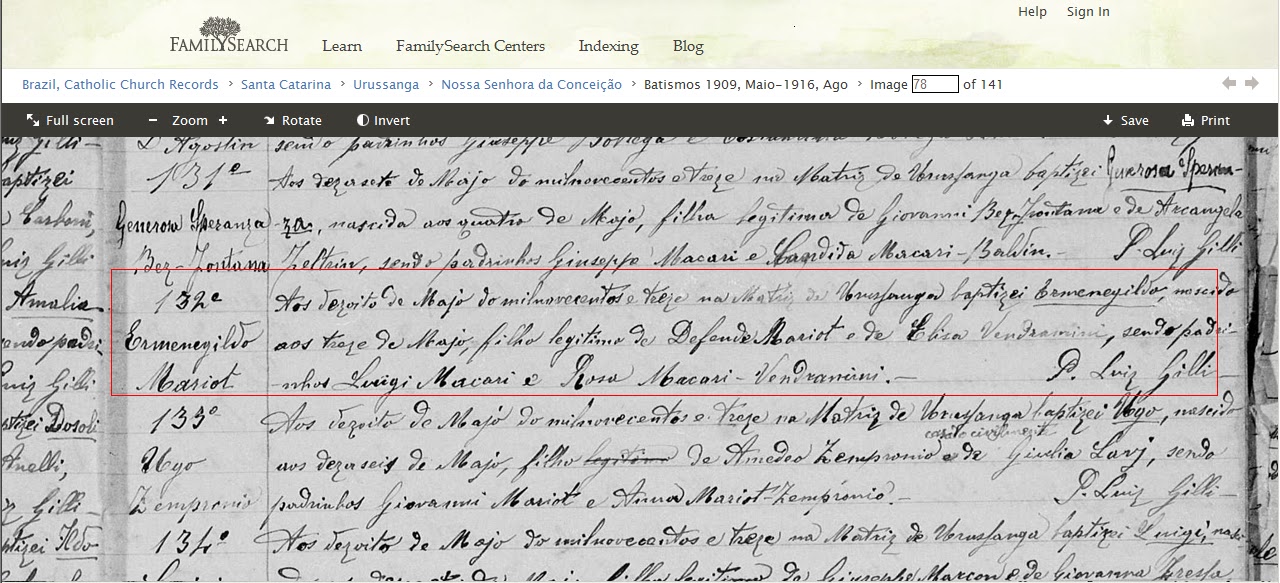 Help Sign In
FAMILYSEARCH Learn FamilySearch Centers Indexing Blog
Brazil, Catholic Church Records › Santa Catarina › Urussanga › Nossa Senhora da Conceição › Batismos 1909, Maio-1916, Ago › Image 78 of 141
Full screen − Zoom + Rotate Invert Save Print
Gilli- D'Agostin sendo padrinhos Giuseppe Bortega e
aptizei 131º Aos dezasete de Majo do milnovecentos e treze na Matriz de Urussanga baptizei Generosa Speran-
Generosa Speranza -za, nascida aos quatro de Majo, filha legitima de Giovanni Bez-Fontana e de Arcangela
Luiz Gilli Bez-Fontana Zeltrin, sendo padrinhos Giuseppe Macari e Candida Macari-Baldin.- P. Luiz Gilli
Amalia 132º Aos dezoito de Majo do milnovecentos e treze na Matriz de Urussanga baptizei Ermenegildo, nascido
endo padri- Ermenegildo aos treze de Majo, filho legitimo de Defende Mariot e de Elisa Vendramini, sendo padri-
Luiz Gilli Mariot -nhos Luigi Macari e Rosa Macari-Vendramini.- P. Luiz Gilli-
133º Aos dezoito de Majo do milnovecentos e treze na Matriz de Urussanga baptizei Ugo, nascido
ptizei Dosoli
casato civilmente
Anelli, Ugo aos dezaseis de Majo, filho legitimo de Amedeo Zempronio e de Giulia Lavj, sendo
Gilli- Zempronio padrinhos Giovanni Mariot e Anna Mariot-Zempronio.- P. Luiz Gilli-
ptizei Ildo- 134º Aos dezoito de Majo do milnovecentos e treze na Matriz de Urussanga baptizei Luigi, nas-
de Majo, filho legitimo de Giuseppe Marcon e de Giovanna Zressa